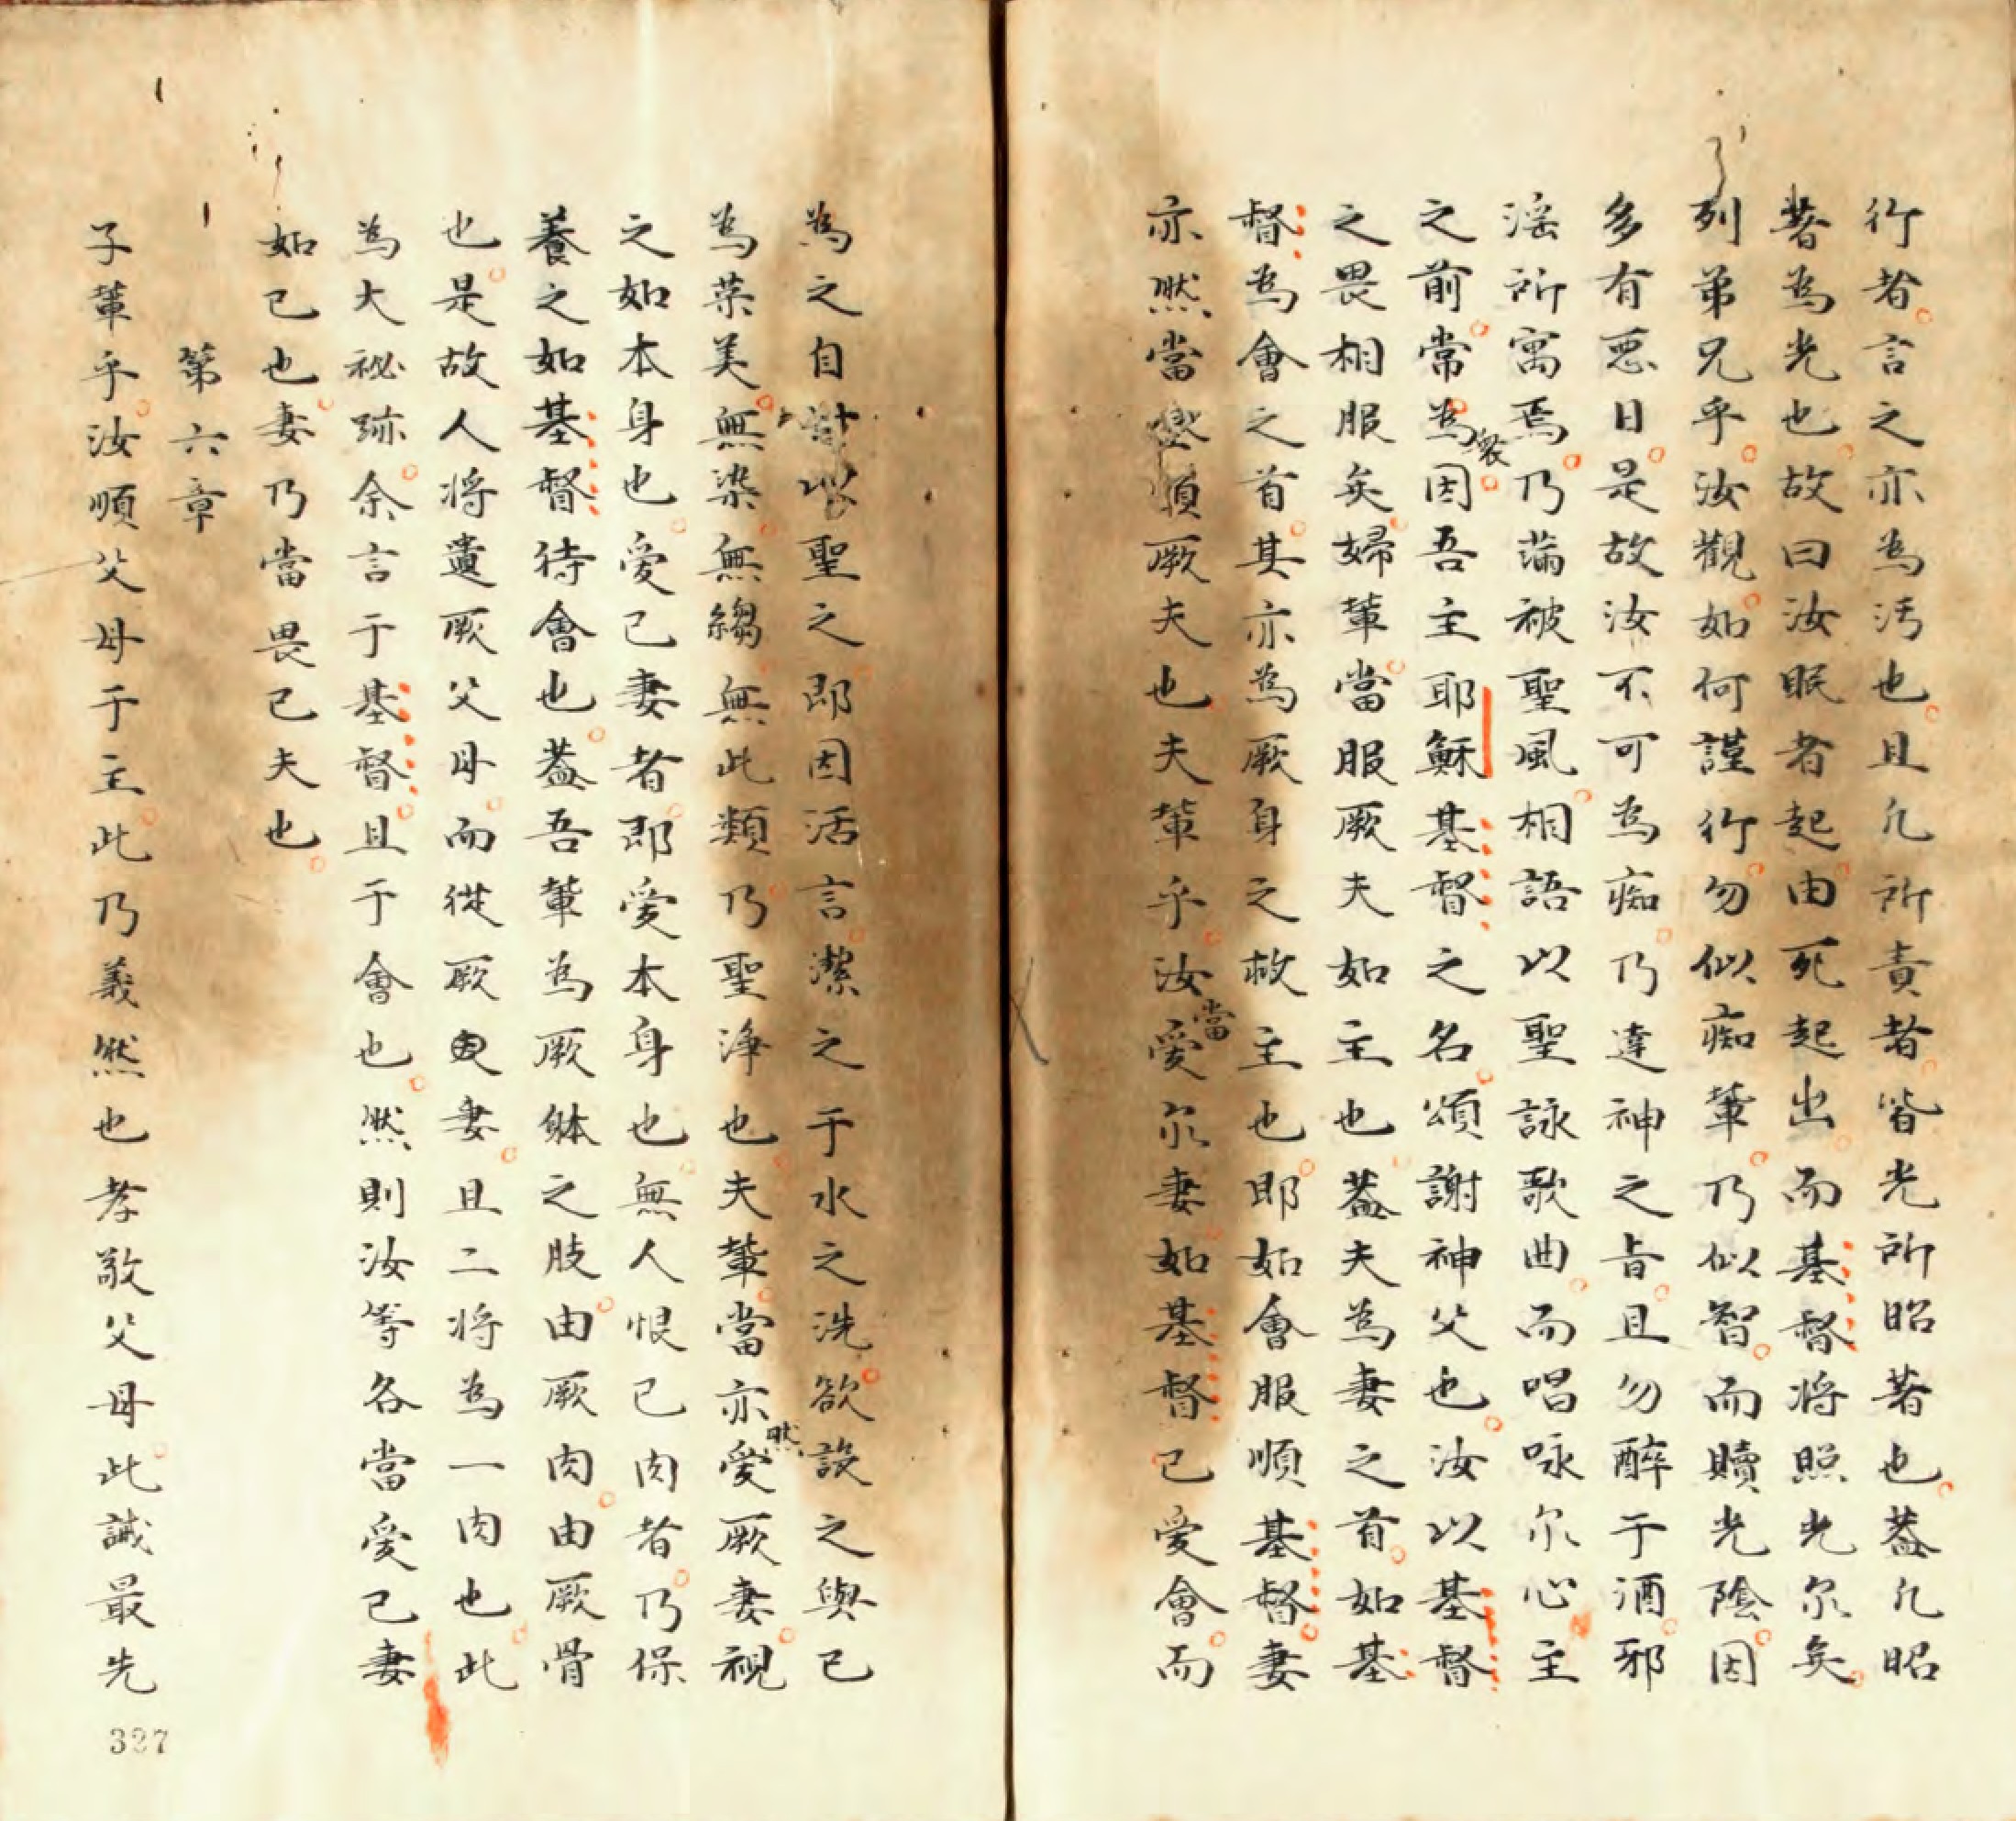 行者言之亦為污也且凡所責者皆光所昭著也蓋凡昭
著為光也故曰汝眠者起由死起出而基督将照光尔矣
列弟兄乎汝觀如何謹行勿似痴輩乃似智而贖光陰因
多有惡日是故汝不可為痴乃達神之旨且勿醉于酒邪
滛所寓焉乃滿被聖風相語以聖詠歌曲而唱咏尔心主
之前常為衆因吾主耶穌基督之名頌謝神父也汝以基督
之畏相服矣婦輩當服厥夫如主也蓋夫為妻之首如基
督為會之首其亦為厥身之救主也即如會服順基督妻
亦然當順厥夫也夫輩乎汝當愛尔妻如基督已愛會而
為之自以聖之即因活言潔之于水之洗欲設之與已
為榮美無染無縐無此類乃聖淨也夫輩當亦然愛厥妻視
之如本身也愛己妻者即愛本身也無人恨己肉者乃保
養之如基督待會也蓋吾輩為厥躰之肢由厥肉由厥骨
也是故人将遺厥父母而従厥妻且二将為一肉也此
為大祕跡余言于基督且于會也然則汝等各當愛己妻
如己也妻乃當畏己夫也
第六章
子輩乎汝順父母于主此乃義然也孝敬父母此誡最先
327